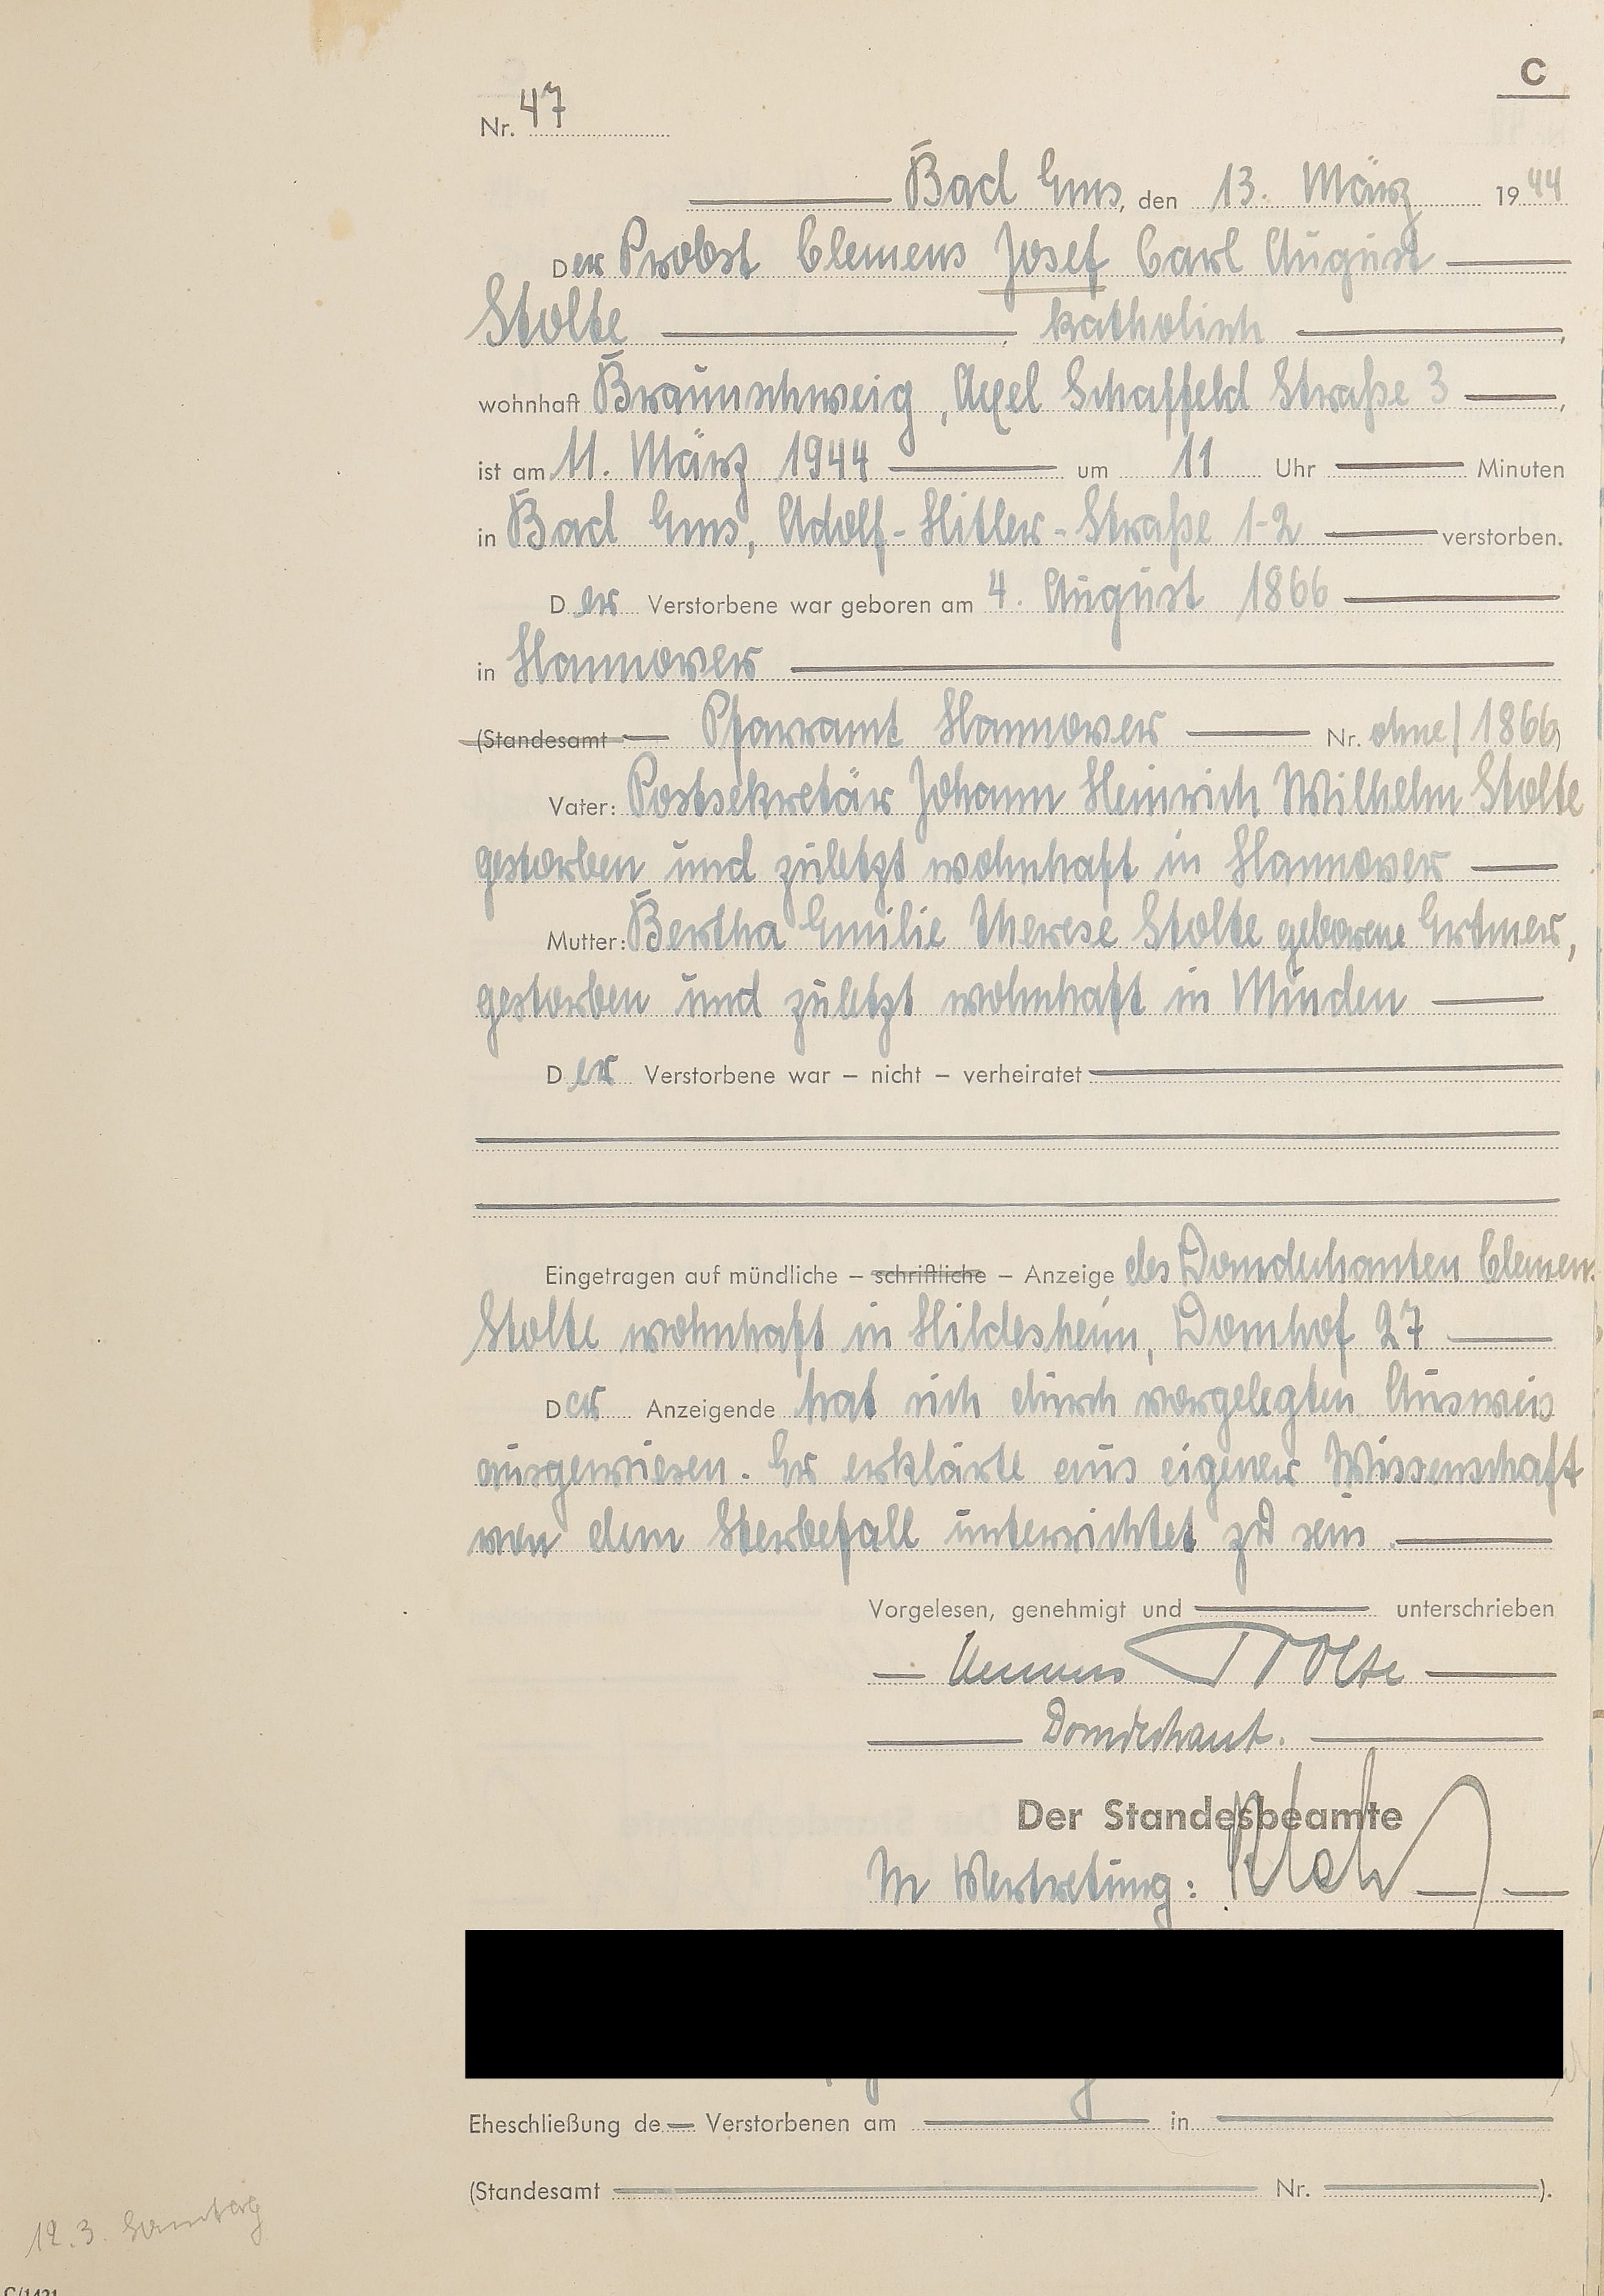 C
Nr. 47
Bad Ems, den 13. März 1944
Der Probst Clemens Josef Carl August
Stolte katholisch,
wohnhaft Braunschweig, Axel Schaffeld Straße 3,
ist am 11. März 1944 um 11 Uhr Minuten
in Bad Ems, Adolf-Hitler-Straße 1-2 verstorben.
Der Verstorbene war geboren am 4. August 1866
in Hannover
(Standesamt Pfarramt Hannover Nr. ohne/1866)
Vater: Postsekretär Johann Heinrich Wilhelm Stolte
gestorben und zuletzt wohnhaft in Hannover
Mutter: Bertha Emilie Therese Stolte geborene Ertmer,
gestorben und zuletzt wohnhaft in Minden
Der Verstorbene war – nicht – verheiratet
Eingetragen auf mündliche – schriftliche – Anzeige des Domdechanten Clemens
Stolte wohnhaft in Hildesheim, Domhof 27
Der Anzeigende hat sich durch vorgelegten Ausweis
ausgewiesen. Er erklärte aus eigener Wissenschaft
von dem Sterbefall unterrichtet zu sein.
Vorgelesen, genehmigt und unterschrieben
Clemens Stolte
Domdechant.
Der Standesbeamte
In Vertretung:
Eheschließung de Verstorbenen am in
(Standesamt Nr. ).
12.3. Sonntag
C/1421